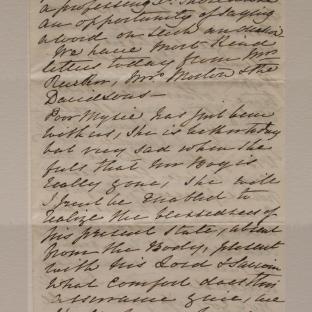 an opportunity of saying
a word on such an occasion
We have most kind
letters today from Mrs
Ruskin, Mrs Morton & the
Davidsons—
Poor Mysie has just been
with us, She is better today
but very sad when she
feels that our Boy is
really gone, She will
I trust be enabled to
realize the blessedness of
his present state, absent
from the Body, present
with his Lord & Saviour
What comfort does this
assurance give, we